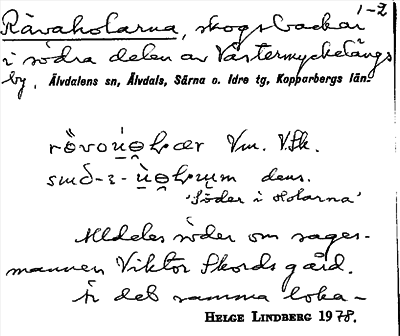 1-2
Rävaholarna, skogsbackar
i södra delen av Västermyckelängs
by, Älvdalens sn, Älvdals, Särna o. Idre tg, Kopparbergs län.
Vm. V.Sk.
dens.
'Söder i Holarna'
Alldeles söder om sages-
mannen Viktor Skords gård.
Är det samma loka-
HELGE LINDBERG 1978.